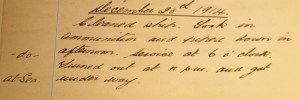 December 20th, 1914.
Cleaned ship. Took in
ammunition and raked down in
-do- afternoon. Service at 6 o'clock.
Turned out at 11 p.m. and got
at Sea. under way